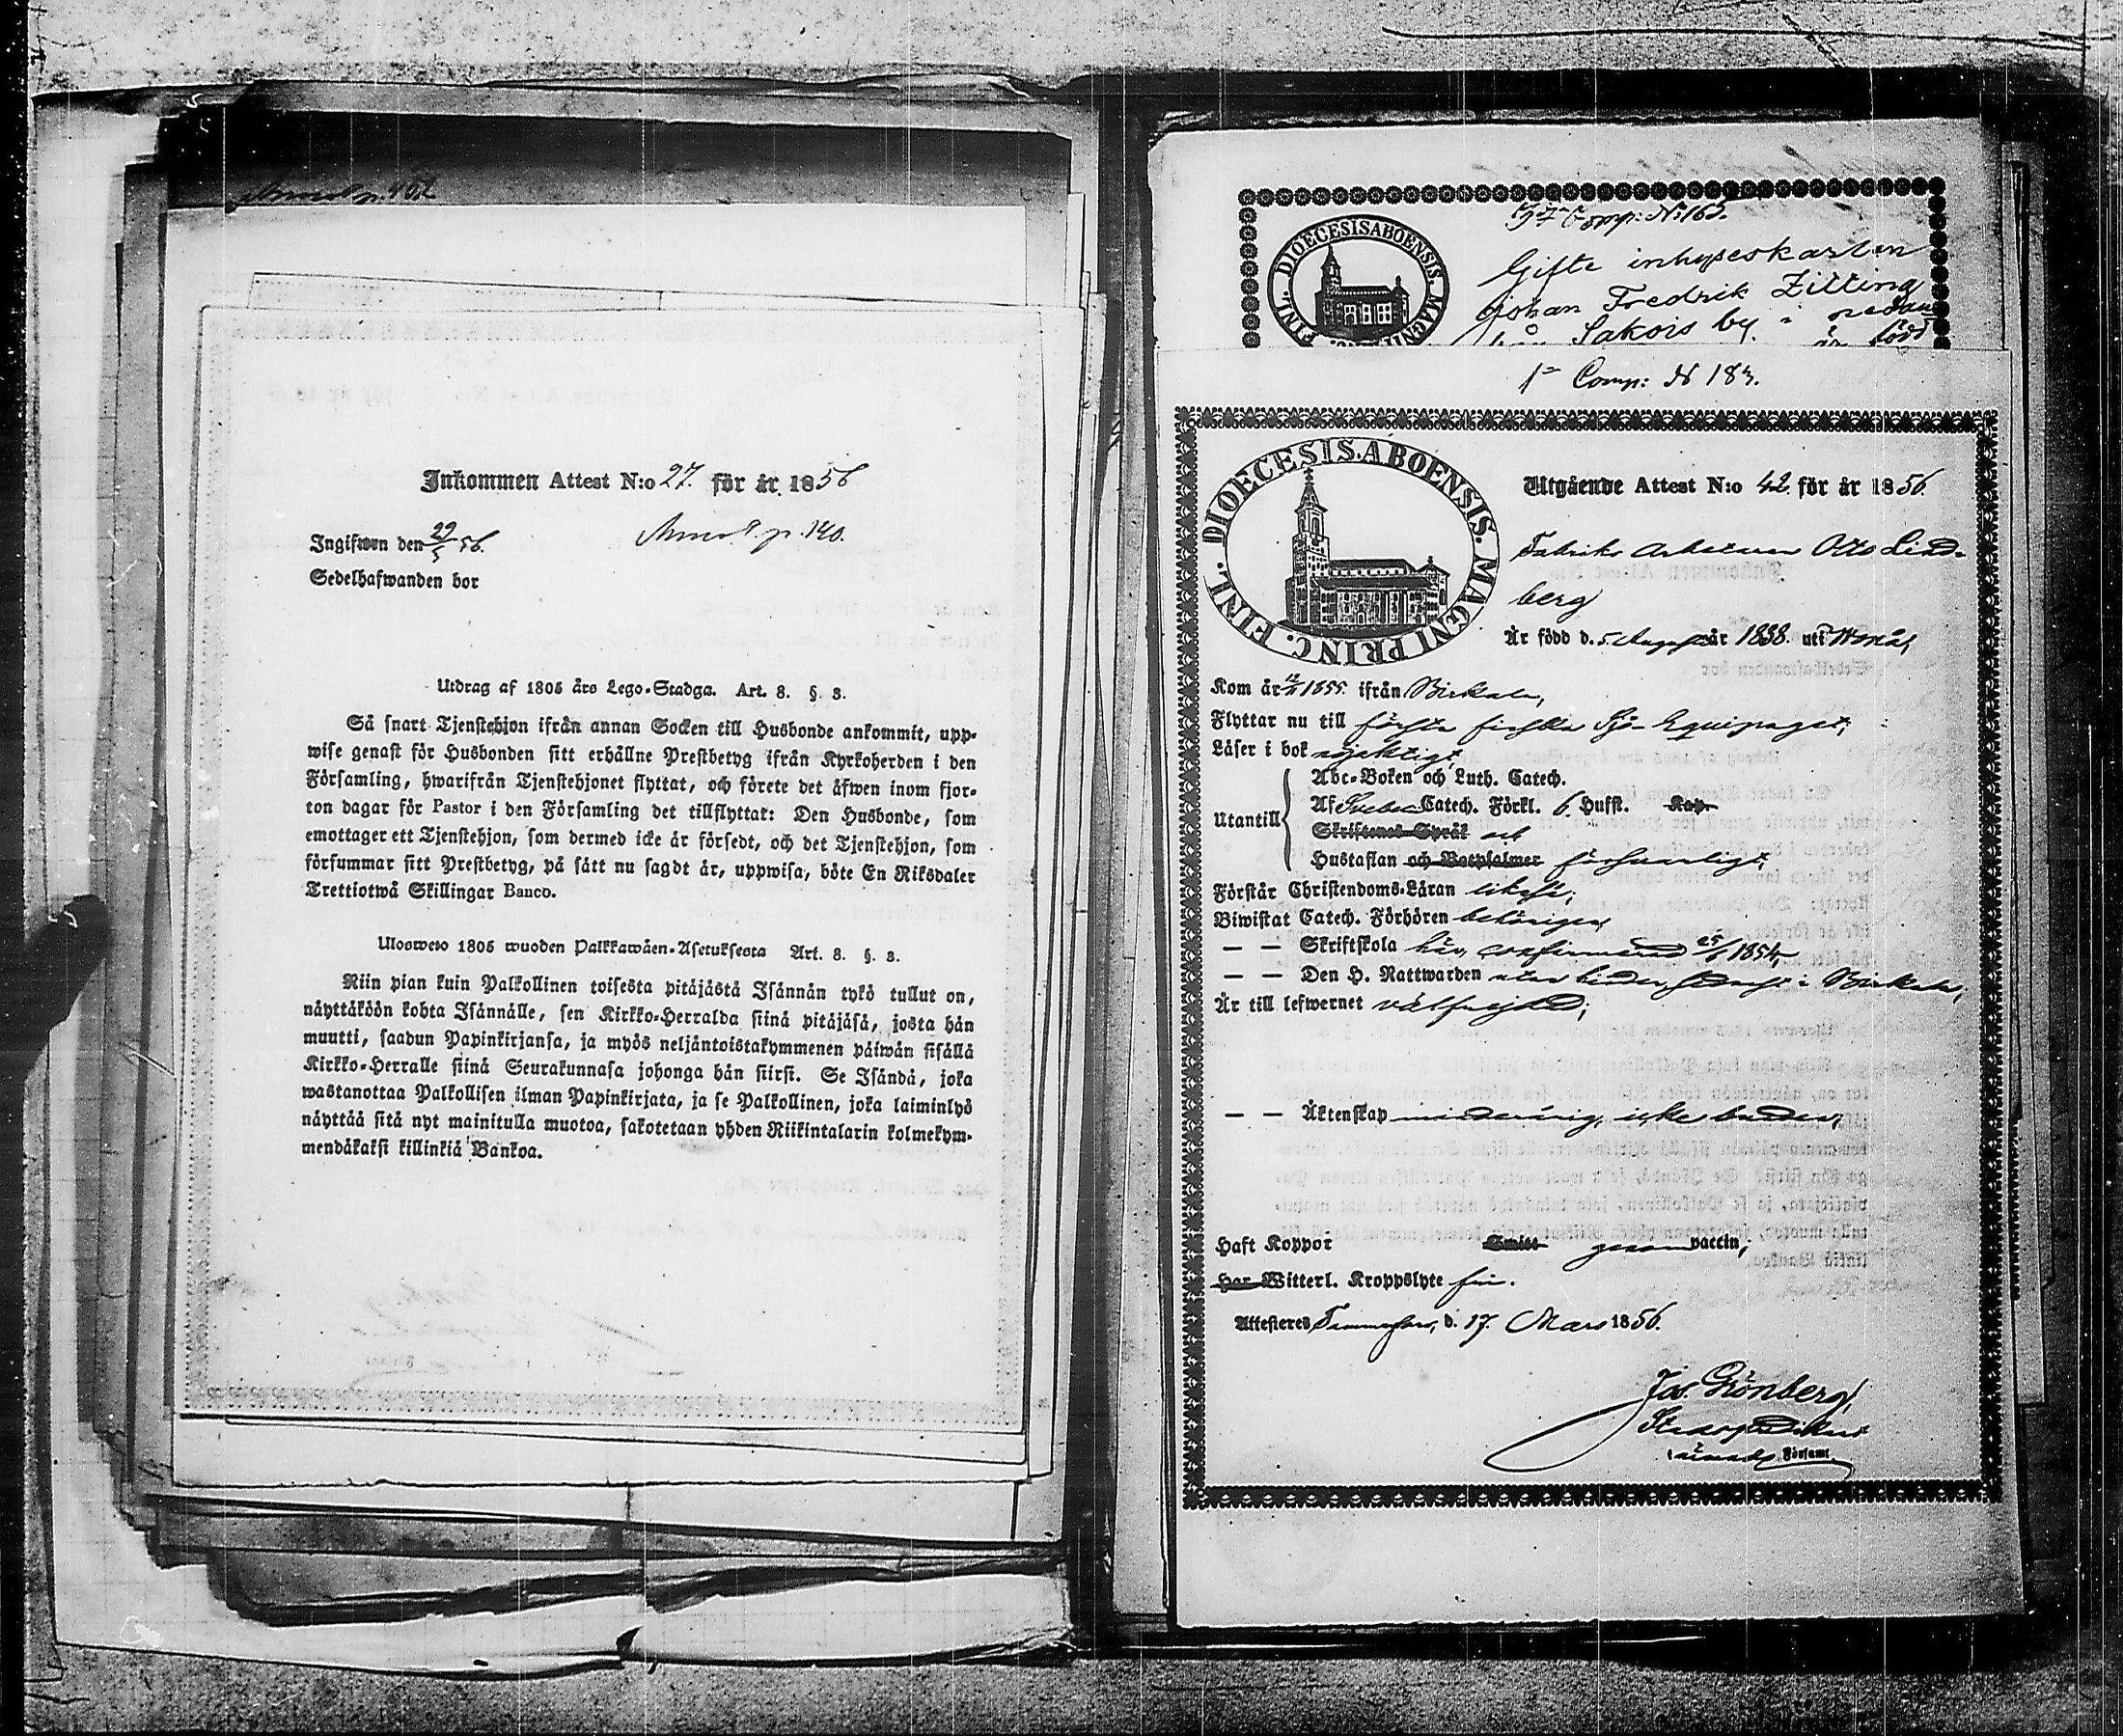 Inkommen Attest N:o 27. för år 1856
Ingifwen den 29/5 56. p. 140.
Sedelhafwanden bor
Utdrag af 1805 års Lego-Stadga. Art. 8. §. 3.
Så snart Tjenstehjon ifrån annan Socken till Husbonde ankommit, upp-
wise genast för Husbonden sitt erhållne Prestbetyg ifrån Kyrkoherden i den
Församling, hwarifrån Tjenstehjonet flyttat, och förete det äfwen inom fjor-
ton dagar för Pastor i den Församling det tillflyttat: Den Husbonde, som
emottager ett Tjenstehjon, som dermed icke är försedt, och det Tjenstehjon, som
försummar sitt Prestbetyg, på sätt nu sagdt är, uppwisa, böte En Riksdaler
Trettiotwå Skillingar Banco.
Ulosweto 1805 wuoden Palkkawäen-Asetuksesta Art. 8. §. 3.
Niin pian kuin Palkollinen toisesta pitäjästä Isännän tykö tullut on,
näyttäköön kohta Isännälle, sen Kirkko-Herralda siinä pitäjäsä, josta hän
muutti, saadun Papinkirjansa, ja myös neljäntoistakymmenen päiwän sisällä
Kirkko-Herralle siinä Seurakunnasa johonga hän siirsi. Se Isändä, joka
wastanottaa Palkollisen ilman Papinkirjata, ja se Palkollinen, joka laiminlyö
näyttää sitä nyt mainitulla muotoa, sakotetaan yhden Riikintalarin kolmekym-
mendäkaksi killinkiä Bankoa.
Comp: N:o 163.
DIOECESIS ABOENSIS MAGNI FINL.
Gifte inhyseskarlen
Johan Fredrik Zilling
från Sakois by i nedan
är född
1:a Comp: N 183.
DIOECESIS ABOENSIS. MAGNI PRINC. FINL.
Utgående Attest N:o 42. för år 1856.
Fabriks Arbetaren Otto Lind-
berg
Är född d. 5 Augusti år 1838. uti
Kom år 1855. ifrån Birkala,
Flyttar nu till första finska Sjö-Equipaget;
Läser i bok nöjaktigt,
Utantill
Abc-Boken och Luth. Catech.
Af Svebes Catech. Förkl. 6. Hufst. Kap.
Skriftenes Språk och
Hustaflan och Botpsalmer försvarligt,
Förstår Christendoms-Läran likaså;
Biwistat Catech. Förhören behörigen,
— — Skriftskola här, confirmerad 25/6 1854,
— — Den H. Nattwarden i Birkala,
Är till lefwernet välfrejdad;
— — Äktenskap minderårig, icke bunden,
Haft Koppor Smitt genom vaccin;
Har Witterl. Kroppslyte fri.
Attesteras Tammerfors, d. 17. Mars 1856.
Jos. Grönberg,
Församl.